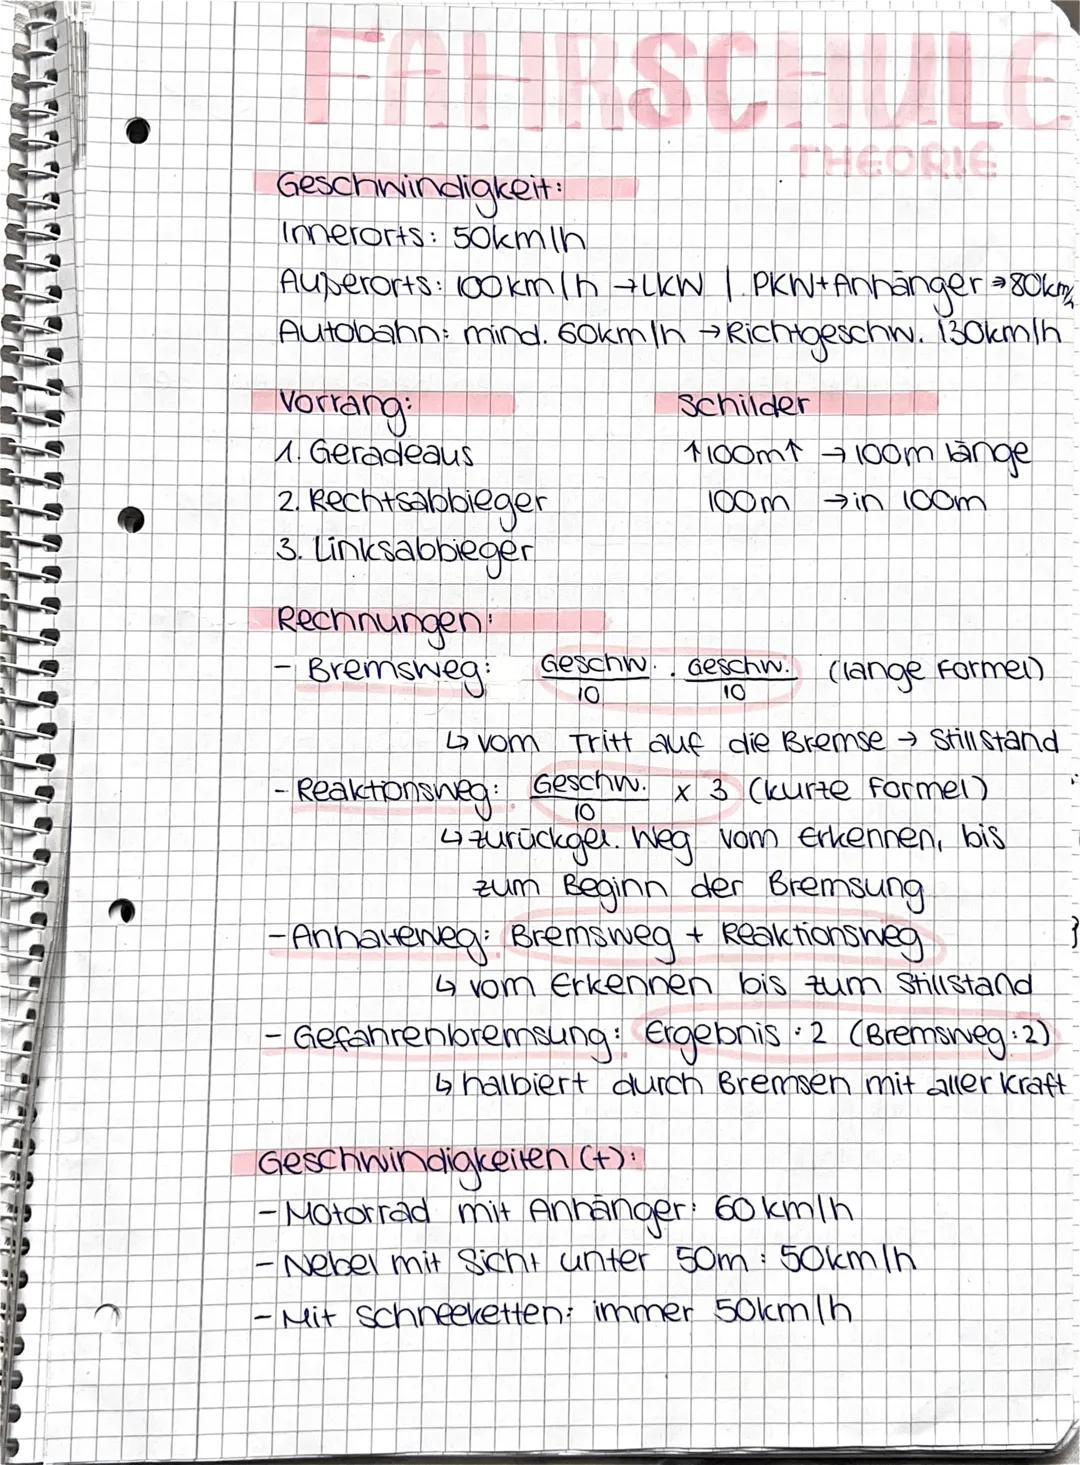 FAHRSCHULE
THEORIE
Geschwindigkeit:
Innerorts: 50km/h
Außerorts: 100km/h → LKW | PKW+Anhänger → 80km/h
Autobahn: mind. 60km/h → Richtgeschw. 130km/h
Vorrang:
1. Geradeaus
2. Rechtsabbieger
3. Linksabbieger
Schilder
↑100m↑ → 100m länge
100m → in 100m
Rechnungen:
- Bremsweg: Geschw./10 · Geschw./10 (lange Formel)
↳ vom Tritt auf die Bremse → Stillstand
- Reaktionsweg: Geschw./10 x 3 (kurze Formel)
↳ zurückgel. Weg vom Erkennen, bis
zum Beginn der Bremsung
- Anhalteweg: Bremsweg + Reaktionsweg
↳ vom Erkennen bis zum Stillstand
- Gefahrenbremsung: Ergebnis : 2 (Bremsweg : 2)
↳ halbiert durch Bremsen mit aller Kraft
Geschwindigkeiten (+):
- Motorrad mit Anhänger: 60 km/h
- Nebel mit Sicht unter 50m : 50km/h
- Mit Schneeketten: immer 50km/h